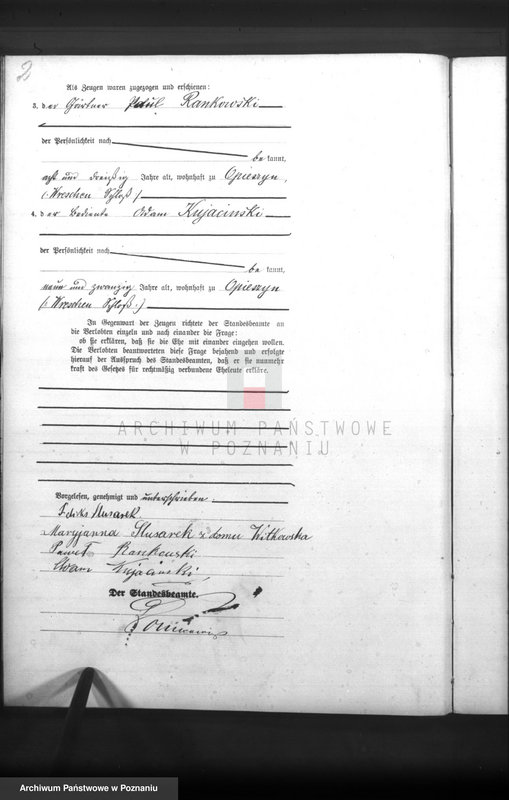 2
Als Zeugen waren zugezogen und erschienen:
3. der Gärtner Paul Rankowski
der Persönlichkeit nach
be kannt,
acht und dreißig Jahre alt, wohnhaft zu Opieszyn,
(Wreschen Schloß)
4. der Bediente Adam Kujacinski
der Persönlichkeit nach
be kannt,
neun und zwanzig Jahre alt, wohnhaft zu Opieszyn
(Wreschen Schloß.)
In Gegenwart der Zeugen richtete der Standesbeamte an
die Verlobten einzeln und nach einander die Frage:
ob sie erklären, daß sie die Ehe mit einander eingehen wollen.
Die Verlobten beantworteten diese Frage bejahend und erfolgte
hierauf der Ausspruch des Standesbeamten, daß er sie nunmehr
kraft des Gesetzes für rechtmäßig verbundene Eheleute erkläre.
ARCHIWUM PAŃSTWOWE
W POZNANIU
Vorgelesen, genehmigt und unterschrieben.
Slusarek
Maryjanna Slusarek z domu Witkowska
Paweł Rankowski
Adam Kujacinski,
Der Standesbeamte.
Archiwum Państwowe w Poznaniu